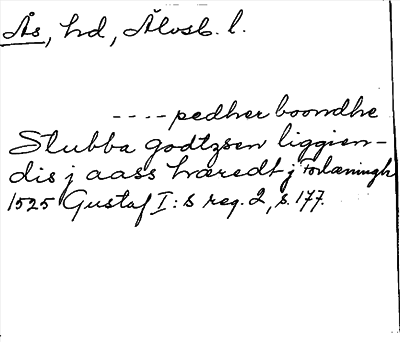 Ås, hd, Älvsb. l.
---- pedher boondhe
Slubba godtzsen liggien-
dis j aass hæredt j forlæningh
1525 Gustaf I:s reg. 2, s. 177.